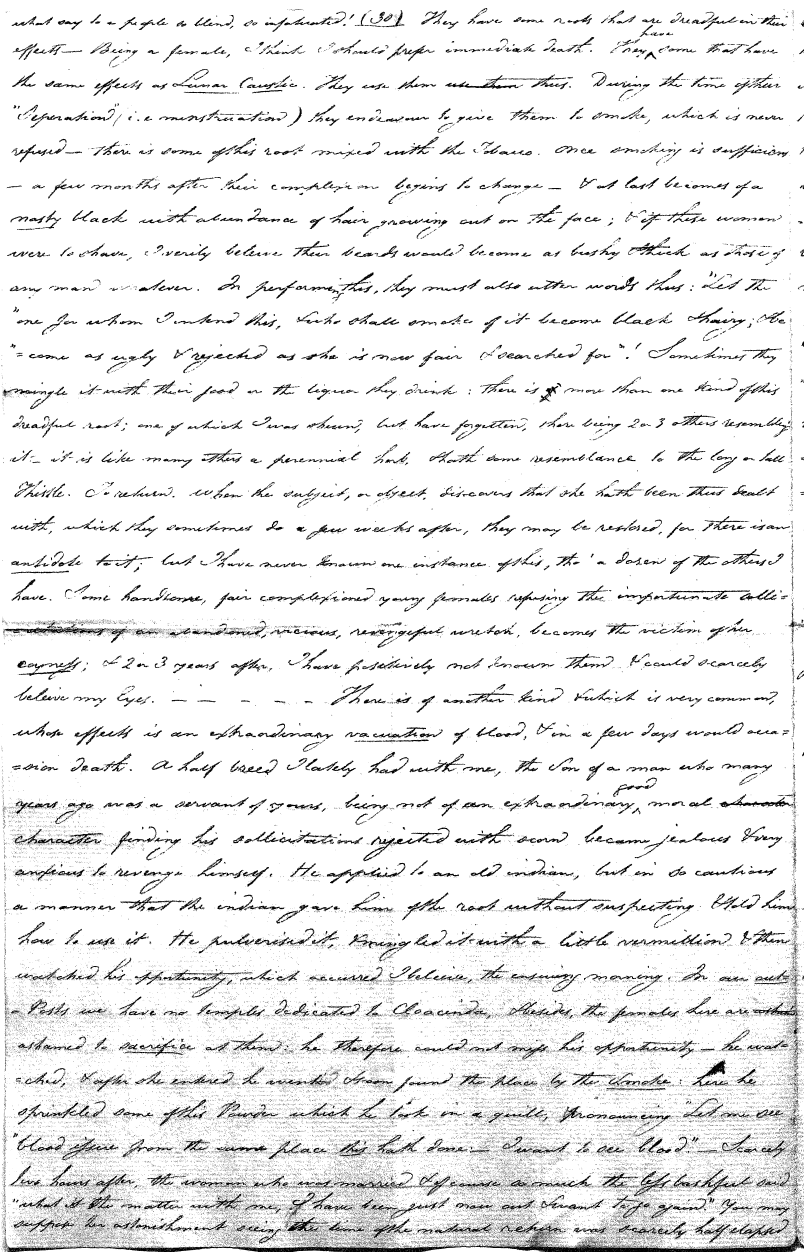 what say to a people so blind, so infatuated! (30) They have some roots that are dreadful in their
effects — Being a female, I think I should prefer immediate death. They have some that have
the same effects as Lunar Caustic. They use them use them thus. During the time of their
"Seperation" (i.e menstruation) they endeavour to give them to smoke, which is never
refused — there is some of this root mixed with the Tobacco. once smoking is sufficient
— a few months after their complexion begins to change — & at last becomes of a
nasty black with abundance of hair growing out on the face; & if these women
were to shave, I verily beleive their beards would become as bushy & thick as those of
any man whatever. In performing this, they must also utter words thus: "Let the
"one for whom I intend this, & who shall smoke of it become black & hairy; & be
"=come as ugly & rejected as she is now fair & searched for"! Sometimes they
mingle it with their food or the liquor they drink: there is more than one kind of this
dreadful root; one of which I was shewn, but have forgotten, there being 2 or 3 others resembling
it — it is like many others a perennial herb, & hath some resemblance to the long or tall
Thistle. To return. When the subject, or object, discovers that she hath been thus dealt
with, which they sometimes do a few weeks after, they may be restored, for there is an
antidote to it; but I have never known one instance of this, tho' a dozen of the others I
have. Some handsome, fair complexioned young females refusing the importunate solli=
=citations of an abandoned, vicious, revengeful wretch, becomes the victim of her
coyness; & 2 or 3 years after, I have positively not known them & could scarcely
beleive my Eyes. — — — — — There is of another kind & which is very common,
whose effects is an extraordinary vacuation of blood, & in a few days would occa=
=sion death. A half breed I lately had with me, the Son of a man who many
years ago was a servant of yours, being not of an extraordinary good moral character
character finding his sollicitations rejected with scorn became jealous & very
anxious to revenge himself. He applied to an old indian, but in so cautious
a manner that the indian gave him of the root without suspecting & told him
how to use it. He pulverised it, & mingled it with a little vermillion & then
watched his opportunity, which occurred I beleive, the ensuing morning. In our out=
= Posts we have no temples dedicated to Cloacinda, & besides, the females here are
ashamed to sacrifice at them: he therefore could not miss his opportunity — he wat=
=ched, & after she entered he wented & soon found the place by the Smoke: here he
sprinkled some of this Powder which he took in a quill, pronouncing "Let me see
"blood issue from the same place this hath done — I want to see blood." — Scarcely
two hours after, the woman who was married & of course so much the less bashful said
"what is the matter with me, I have been just now out & want to go again." You may
suppose her astonishment seeing the time of the natural return was scarcely half elapsed